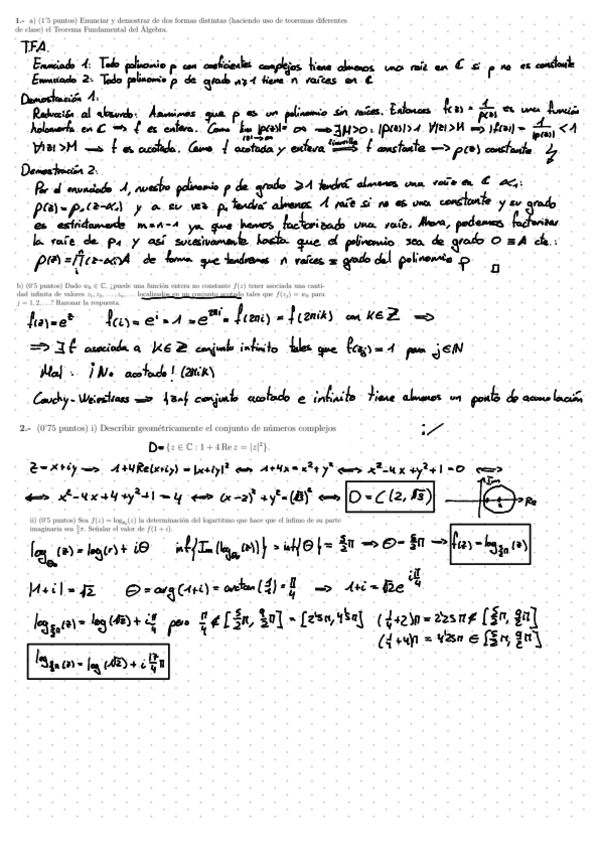 1.- a) (1'5 puntos) Enunciar y demostrar de dos formas distintas (haciendo uso de teoremas diferentes
de clase) el Teorema Fundamental del Álgebra.
T.F.A.
Enunciado 1: Todo polinomio p con coeficientes complejos tiene almenos una raíz en ℂ si p no es constante
Enunciado 2: Todo polinomio p de grado n≥1 tiene n raíces en ℂ
Demostración 1:
Reducción al absurdo: Asumimos que p es un polinomio sin raíces. Entonces f(z) = 1/p(z) es una función
holomorfa en ℂ ⟹ f es entera. Como lim |p(z)| = ∞ ⟹ ∃M>0: |p(z)|>1 ∀|z|>M ⟹ |f(z)| = 1/|p(z)| < 1
∀|z|>M ⟹ f es acotada. Como f acotada y entera ⟹ f constante ⟹ p(z) constante
Demostración 2:
Por el enunciado 1, nuestro polinomio p de grado ≥1 tendrá almenos una raíz en ℂ α₁:
p(z) = p₁(z-α₁) y a su vez p₁ tendrá almenos 1 raíz si no es una constante y su grado
es estrictamente m=n-1 ya que hemos factorizado una raíz. Ahora, podemos factorizar
la raíz de p₁ y así sucesivamente hasta que el polinomio sea de grado 0 ≡ A cte.:
p(z) = ∏(z-αᵢ)A de forma que tendremos n raíces ≡ grado del polinomio p □
b) (0'5 puntos) Dado w₀ ∈ ℂ, ¿puede una función entera no constante f(z) tener asociada una canti-
dad infinita de valores z₁, z₂, . . . , zₙ, . . . localizados en un conjunto acotado tales que f(zⱼ) = w₀ para
j = 1, 2, . . .? Razonar la respuesta.
f(z)=e^z f(i) = e^i = 1 = e^{2πi} = f(2πi) = f(2πik) con K∈ℤ ⟹
⟹ ∃ f asociada a K∈ℤ conjunto infinito tales que f(zⱼ) = 1 para j∈ℕ
Mal: ¡No acotado! (2πik)
Cauchy-Weierstrass ⟹ {zₙ} conjunto acotado e infinito tiene almenos un punto de acumulación
2.- (0'75 puntos) i) Describir geométricamente el conjunto de números complejos
D = {z ∈ ℂ : 1 + 4 Re z = |z|²}.
z = x+iy ⟶ 1+4Re(x+iy) = |x+iy|² ⟺ 1+4x = x²+y² ⟺ x²-4x+y²+1=0 ⟺
⟺ x²-4x+4+y²+1=4 ⟺ (x-2)²+y²=(√3)² ⟺ D = C(2, √3) Im Re
ii) (0'5 puntos) Sea f(z) = log_{θ₀}(z) la determinación del logaritmo que hace que el ínfimo de su parte
imaginaria sea 5/2 π. Señalar el valor de f(1 + i).
log_{θ₀}(z) = log(r) + iθ inf{Im(log_{θ₀}(z))} = inf{θ} = 5/2 π ⟶ θ = 5/2 π ⟶ f(z) = log_{5/2 π}(z)
|1+i| = √2 θ = arg(1+i) = arctan(1/1) = π/4 ⟶ 1+i = √2e^{iπ/4}
log_{5/2 π}(z) = log(√2) + iπ/4 pero π/4 ∉ [5/2 π, 9/2 π] = [2'5π, 4'5π] (1/4+2)π = 2'25π ∉ [5/2 π, 9/2 π]
(1/4+4)π = 4'25π ∈ [5/2 π, 9/2 π]
log_{5/2 π}(z) = log(√2) + i 17/4 π